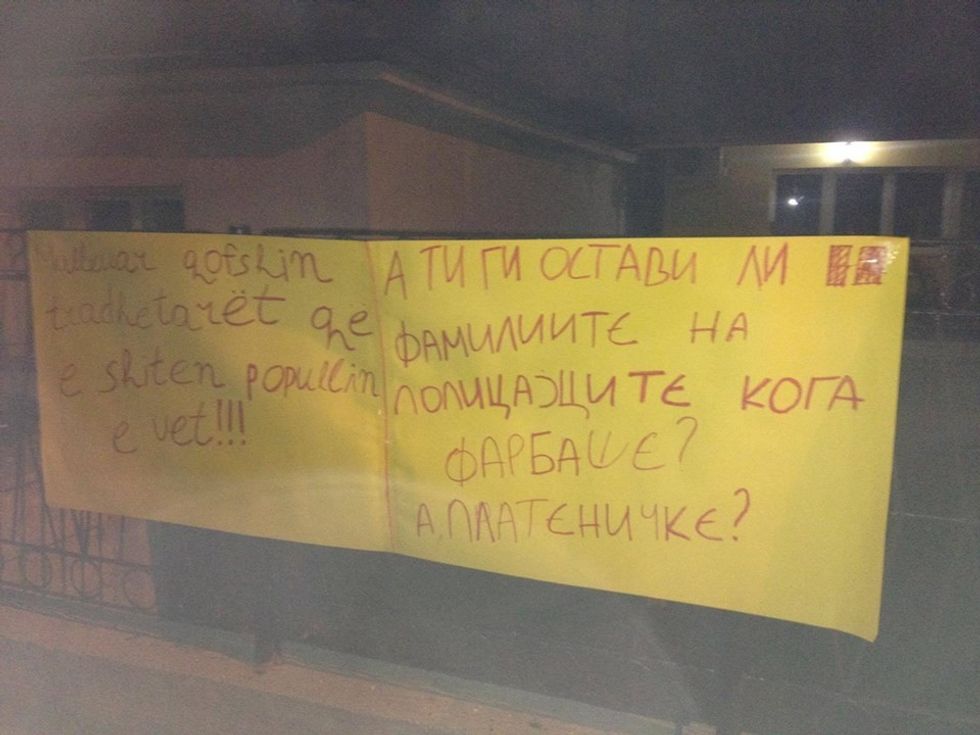 Mallkuar qofshin
tradhetarët që
e shiten popullin
e vet!!!
А ТИ ГИ ОСТАВИ ЛИ
ФАМИЛИИТЕ НА
ПОЛИЦАЈЦИТЕ КОГА
ФАРБАШЕ?
А, ПЛАТЕНИЧКЕ?